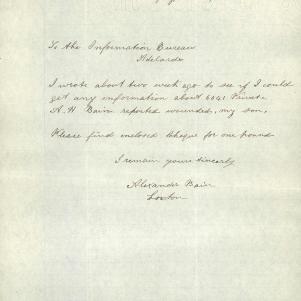 To the Information Bureau
Adelaide
I wrote about two week ago to see if I could
get any information about 6041 Private
A. H. Bain reported wounded, my son,
Please find enclosed cheque for one pound
I remain yours sincerly
Alexander Bain
Loxton